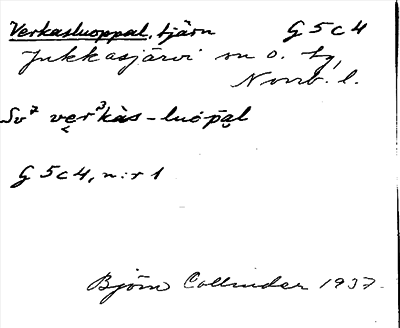 Verkasluoppal, tjärn G5c4
Jukkasjärvi sn o. tg,
Norrb. l.
Sv⁷ vę̆r³kàs-luòp̄ạl
G5c4, n:r 1
Björn Collinder 1937.